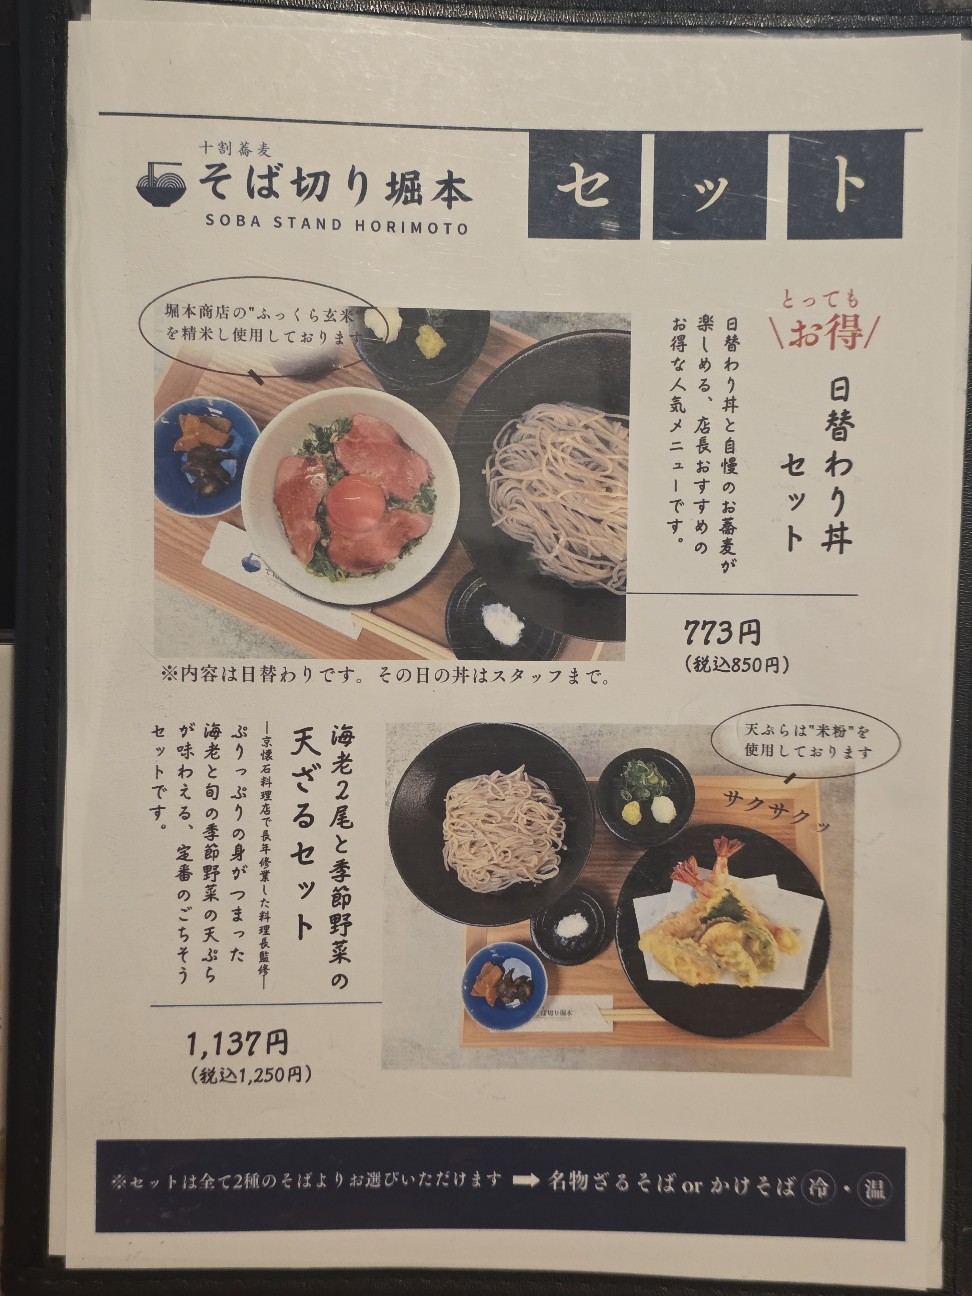 十割蕎麦
そば切り堀本
SOBA STAND HORIMOTO
セット
堀本商店の"ふっくら玄米"
を精米し使用しております
とっても
\お得/
日替わり丼
セット
日替わり丼と自慢のお蕎麦が
楽しめる、店長おすすめの
お得な人気メニューです。
773円
(税込850円)
※内容は日替わりです。その日の丼はスタッフまで。
海老2尾と季節野菜の
天ざるセット
―京懐石料理店で長年修業した料理長監修―
ぷりっぷりの身がつまった
海老と旬の季節野菜の天ぷら
が味わえる、定番のごちそう
セットです。
1,137円
(税込1,250円)
天ぷらは"米粉"を
使用しております
サクサクッ
そば切り堀本
※セットは全て2種のそばよりお選びいただけます ➡ 名物ざるそば or かけそば 冷・温